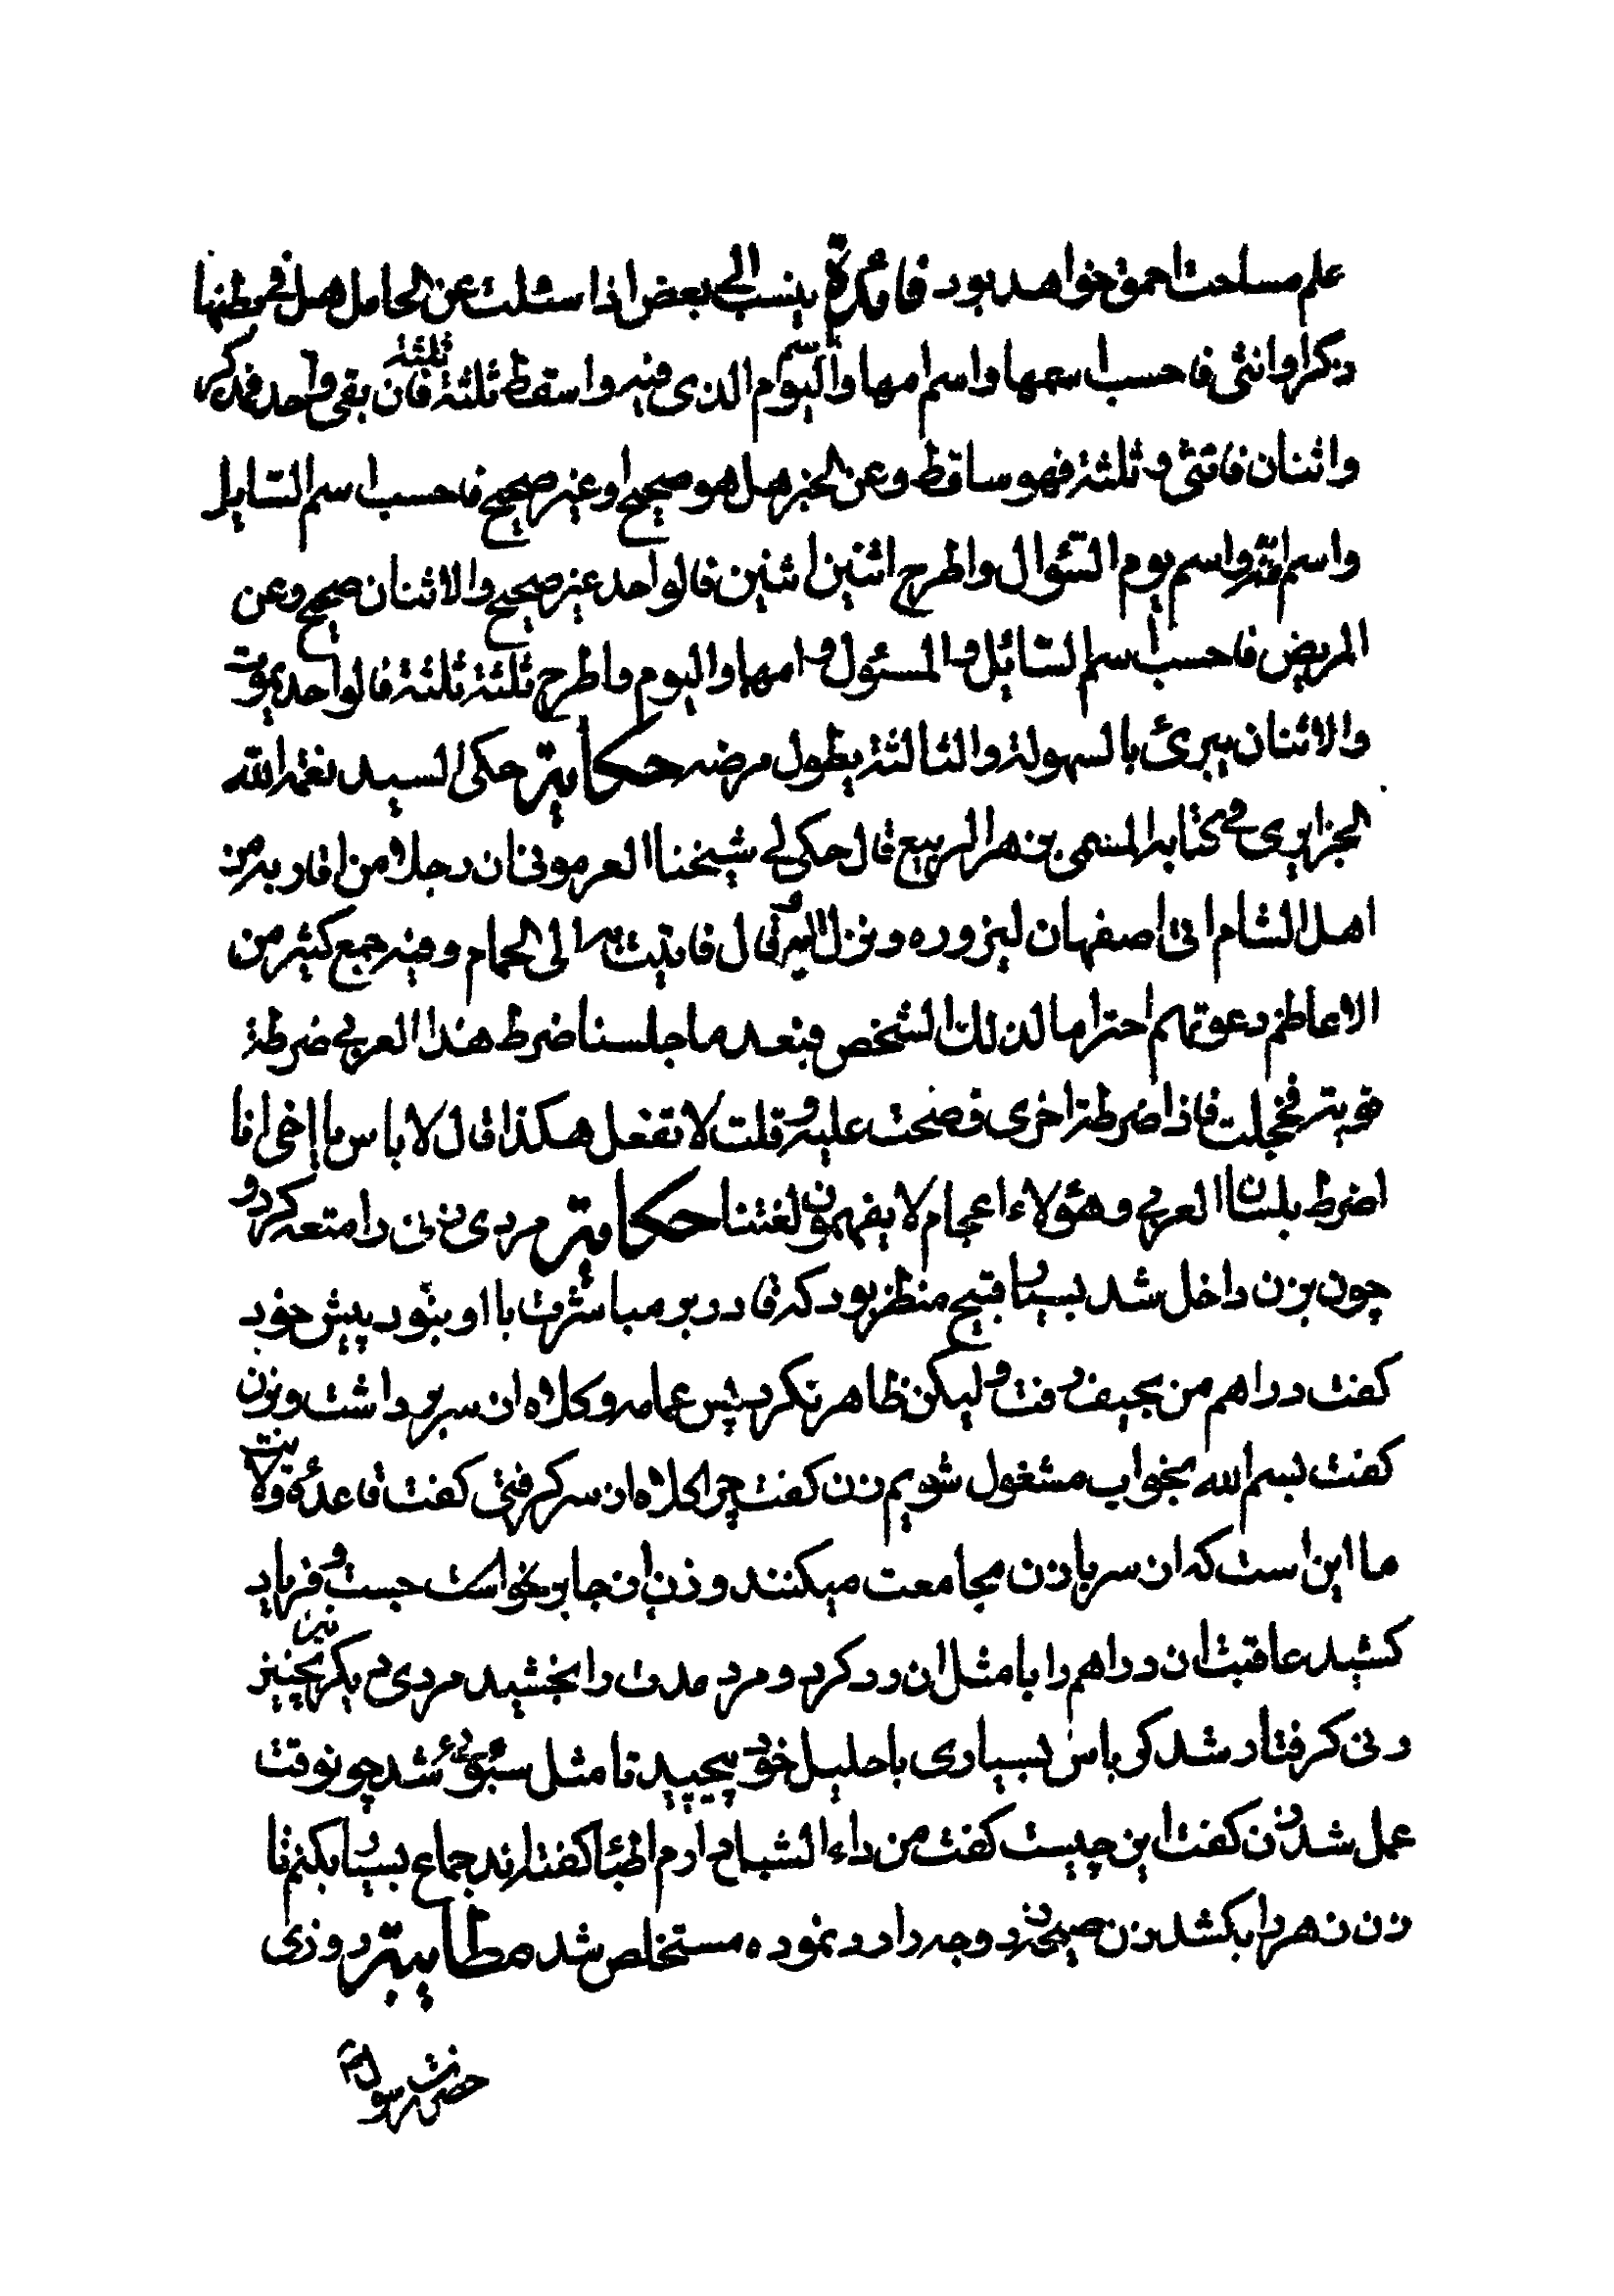 علم مساحت احمق خواهد بود فائدة ینسب الی بعض اذا سئلت عن الحامل هل فی بطنها
ذکر او انثی فاحسب اسمها و اسم امها و اسم الیوم الذی فیه و اسقط ثلثة ثلثة فان بقی واحد فذکر
و اثنان فانثی و ثلثة فهو ساقط و عن الخبر هل هو صحیح او غیر صحیح فاحسب اسم السایل
و اسم امّه و اسم یوم السّؤال و اطرح اثنین اثنین فالواحد غیر صحیح والاثنان صحیح و عن
المریض فاحسب اسم السّائل و المسئول و امهما و الیوم و اطرح ثلثة ثلثة فالواحد یموت
والاثنان یبرئ بالسهولة والثالثة یطول مرضه حکایة حکی السید نعمة الله
الجزایری فی کتابه المسمی بزهر الربیع قال حکی لی شیخنا العرمونی ان رجلا من اقاربه من
اهل الشام اتی اصفهان لیزوره و نزل الیه قال فاتیت به الی الحمام و فیه جمع کثیر من
الاعاظم دعوتهم احتراما لذلک الشخص فبعد ما جلسنا ضرط هذا العربی ضرطة
قویة فخجلت فاذا ضرطة اخری فضحت علیه و قلت لا تفعل هکذا قال لا باس یا اخی انا
اضرط بلسان العربی و هؤلاء اعجام لا یفهمون لغتنا حکایة مردی زنی را متعه کرد و
چون بزن داخل شد بسیار قبیح منظر بود که قادر بر مباشرت با او نبود پیش خود
کفت دراهم من بحیف رفت و لیکن ظاهر نکرد پس عمامه و کلاه از سر برداشت و بزن
کفت بسم الله بخواب مشغول شویم زن کفت چرا کلاه از سر کرفتی کفت قاعدۀ ولایت
ما این است که از سر با زن مجامعت میکنند و زن از جا برخواست جست و فریاد
کشید عاقبت ان دراهم را با مثل ان رد کرد و مرد مدت را بخشید مردی دیکر نیز بچنین
زنی کرفتار شد کرباس بسیاری باحلیل خود پیچید تا مثل سبوئی شد چون وقت
عمل شد زن کفت این چیست کفت من داء الشباح دارم اطبا کفته اند جماع بسیار بکنم تا
زن زهر را بکشد زن صیحه زد و وجه را رد نموده مستخلص شد مطایبة روزی
حضرت رسول